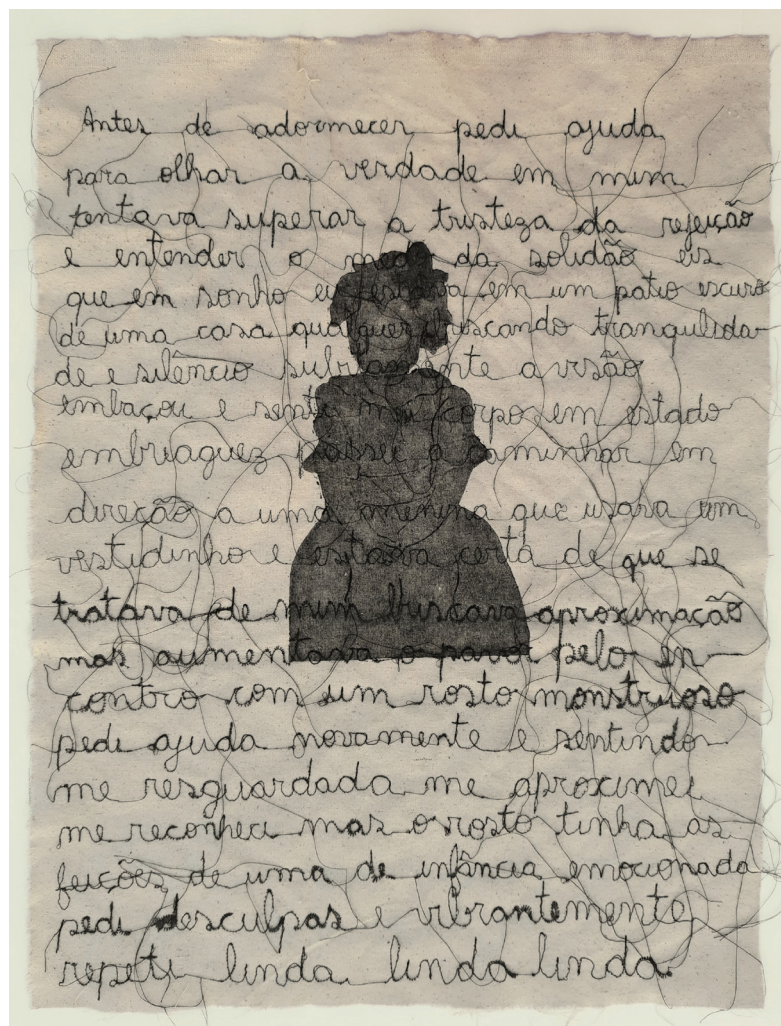 Antes de adormecer pedi ajuda
para olhar a verdade em mim
tentava superar a tristeza da rejeição
e entender o medo da solidão eis
que em sonho eu estava em um patio escuro
de uma casa qualquer buscando tranquilida-
de e silêncio subitamente a visão
embaçou e senti meu corpo em estado
embriaguez passei a caminhar em
direção a uma menina que usava um
vestidinho e estava certa de que se
tratava de mim buscava aproximação
mas aumentava o pavor pelo en-
contro com um rosto monstruoso
pedi ajuda novamente e sentindo
me resguardada me aproximei
me reconheci mas o rosto tinha as
feições de uma de infância emocionada
pedi desculpas e vibrantemente
repeti linda linda linda